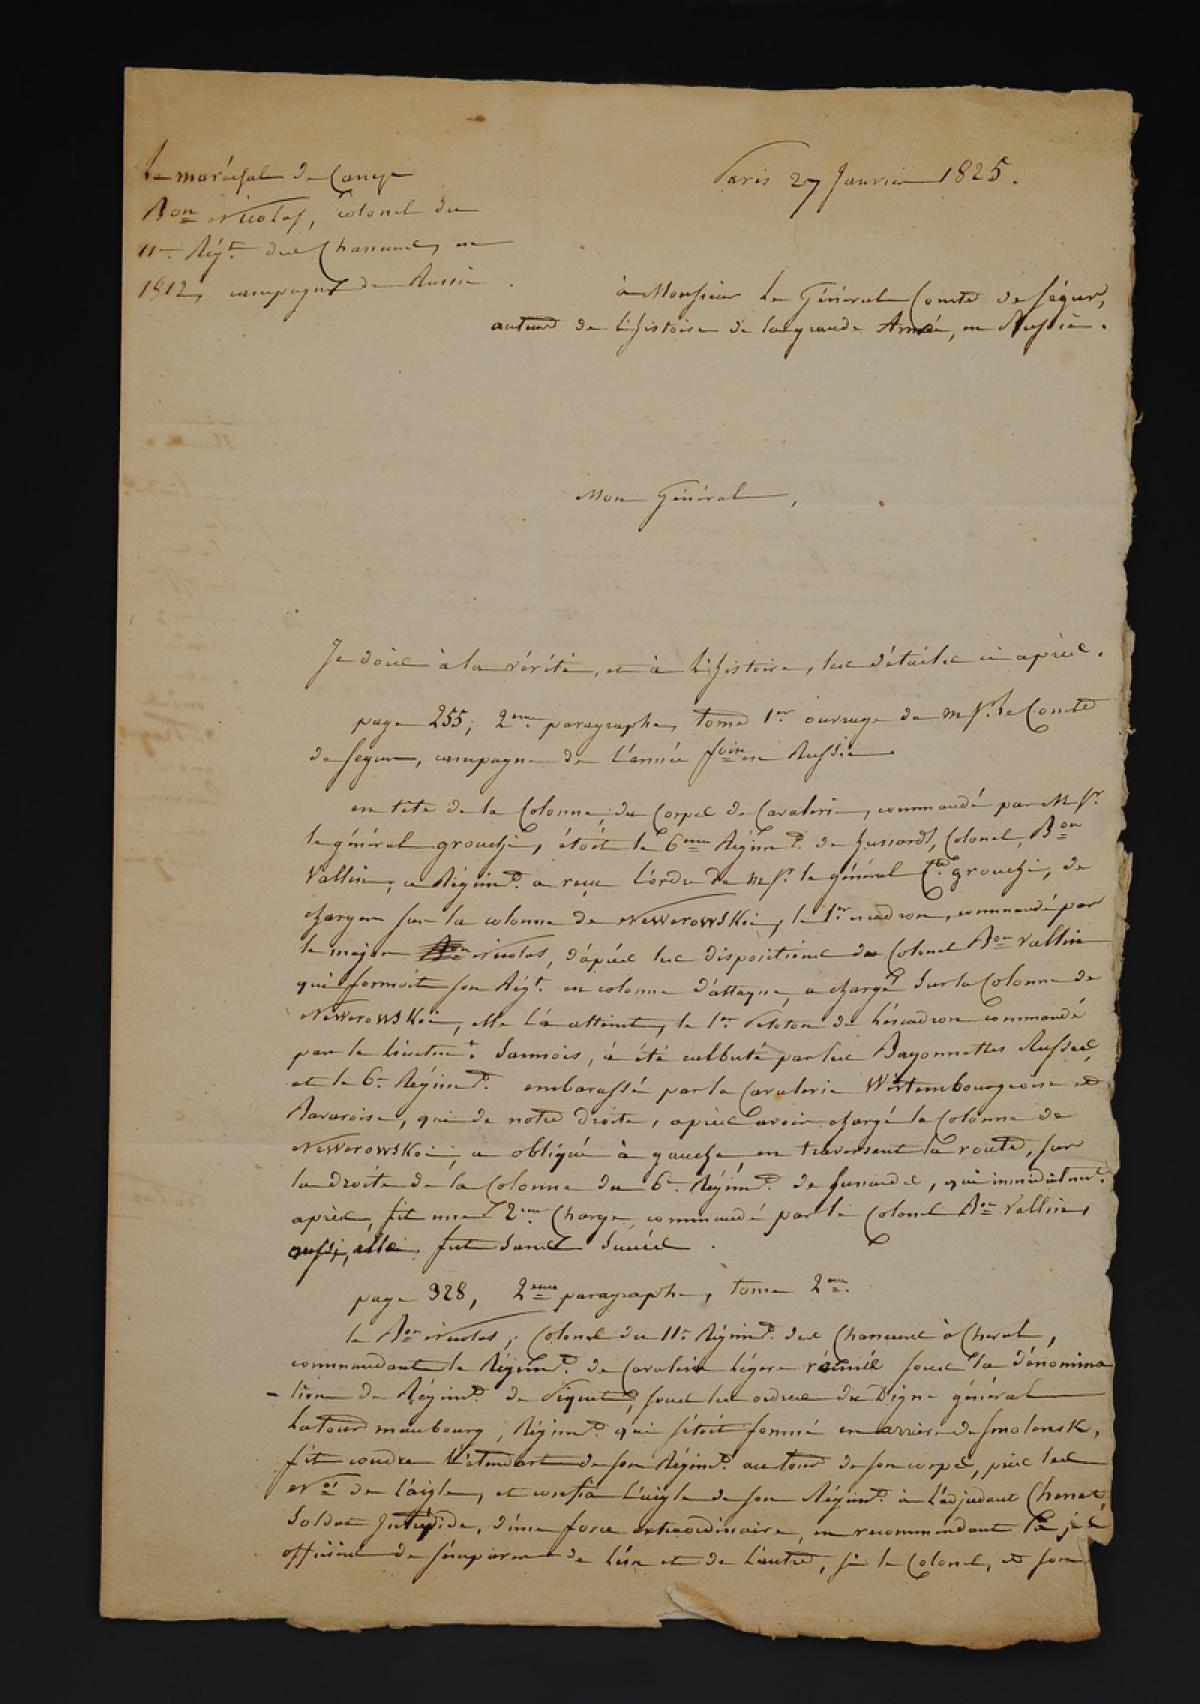 Le maréchal de Camp
Bon Nicolas, Colonel du
11e Régt. des Chasseurs, en
1812, campagne de Russie.
Paris 27 Janvier 1825.
à Monsieur le Général Comte de Ségur,
auteur de l'histoire de la grande Armée, en Russie.
Mon Général,
Je dois à la vérité, et à l'histoire, les détails ci après.
page 255, 2eme paragraphe, tome 1er ouvrage de Mr. le Comte
de Segur, campagne de l'année en Russie.
en tête de la Colonne, du Corps de Cavalerie, commandé par Mr.
le général grouchi, étoit le 6eme Régimt. de hussards, Colonel, Bon
Vallin, ce Régimt. a reçu l'ordre de Mr. le général Cte. grouchi, de
charger sur la colonne de Newerowskoi, le 1er escadron, commandé par
le major Bon Nicolas, d'après les dispositions du Colonel Bon Vallin
qui formoit son Régt. en colonne d'attaque, a chargé sur la Colonne de
Newerowskoi, elle l'a atteint, le 1er Peloton de l'escadron commandé
par le Lieutent. Sannois, à été culbuté par les Bayonnettes Russes,
et le 6e Régimt. embarassé par la Cavalerie Wirtembourgeoise et
Bavaroise, qui de notre droite, après avoir chargé la Colonne de
Newerowskoi, a obliqué à gauche, en traversant la route, sur
la droite de la Colonne du 6e Régimt. de hussards, qui immédiatmt.
après, fit une 2eme Charge, commandé par le Colonel Bon Vallin,
aussi, elle fut sans succès.
page 328, 2eme paragraphe, tome 2me.
le Bon Nicolas, Colonel du 11e Régimt. des Chasseurs à Cheval,
commandant le Régimt. de Cavalerie légère réunie sous la dénomina
-tion de Régimt. de Piquet, sous les ordres du Digne général
Latour maubourg, Régimt. qui s'étoit formé en arrière de Smolensk,
fit coudre l'étendart de son Régimt. autour de son corps, pris les
de l'aigle, et confia l'aigle de son Régimt. à l'adjudant
Soldat Intrépide, d'une force extraordinaire, en recommendant
officiers de s'emparer de l'un et de l'autre, si le Colonel, et son